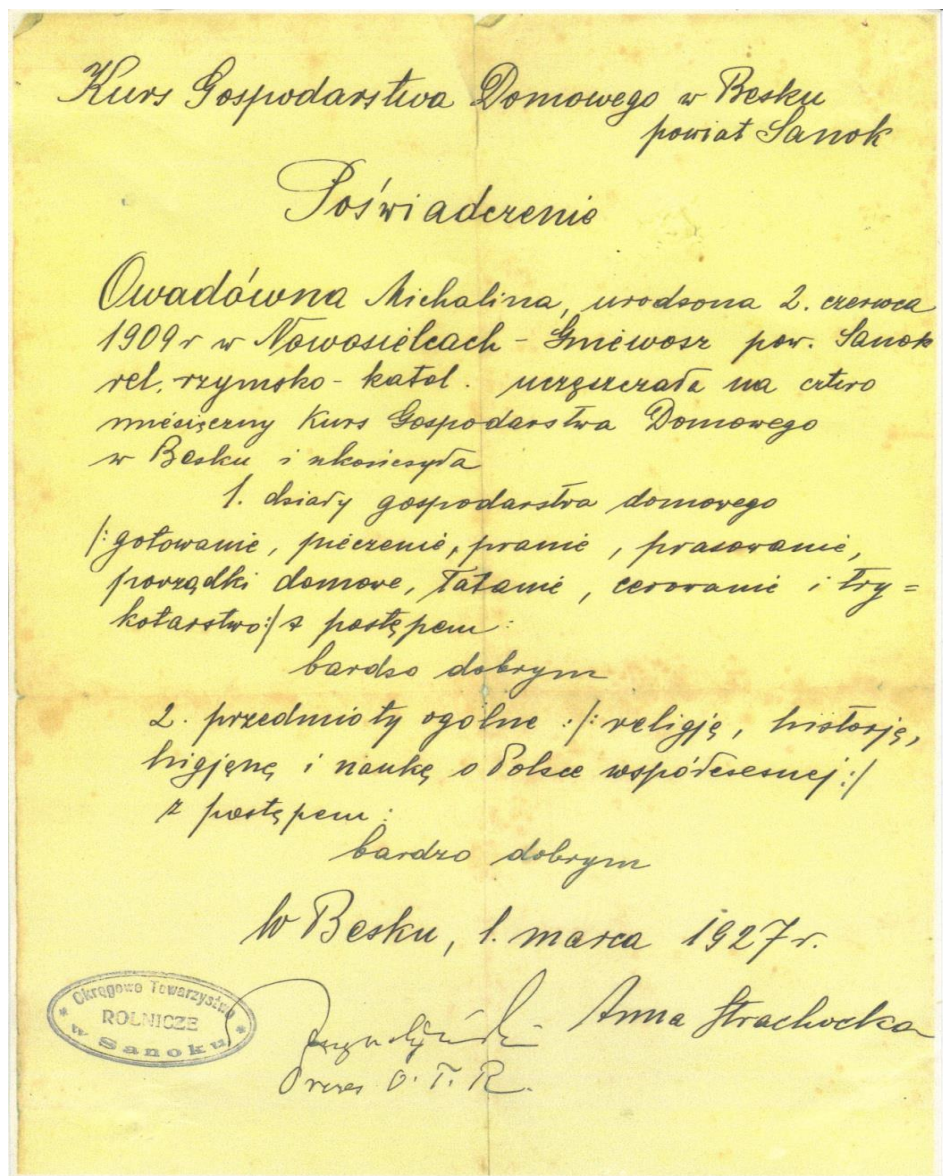 Kurs Gospodarstwa Domowego w Besku
powiat Sanok
Poświadczenie
Owadówna Michalina, urodzona 2. czerwca
1909 r w Nowosielcach - Gniewosz pow. Sanok
rel. rzymsko - katol. uczęszczała na cztero
miesięczny Kurs Gospodarstwa Domowego
w Besku i ukończyła
1. działy gospodarstwa domowego
/: gotowanie, pieczenie, pranie, prasowanie,
porządki domowe, łatanie, cerowanie i try=
kotarstwo :/ z postępem :
bardzo dobrym
2. przedmioty ogólne : /: religję, historję,
higjenę i naukę o Polsce współczesnej :/
z postępem :
bardzo dobrym
W Besku, 1. marca 1927 r.
Okręgowe Towarzystwo
ROLNICZE
w Sanoku
Anna Strachocka
Prezes O. T. R.